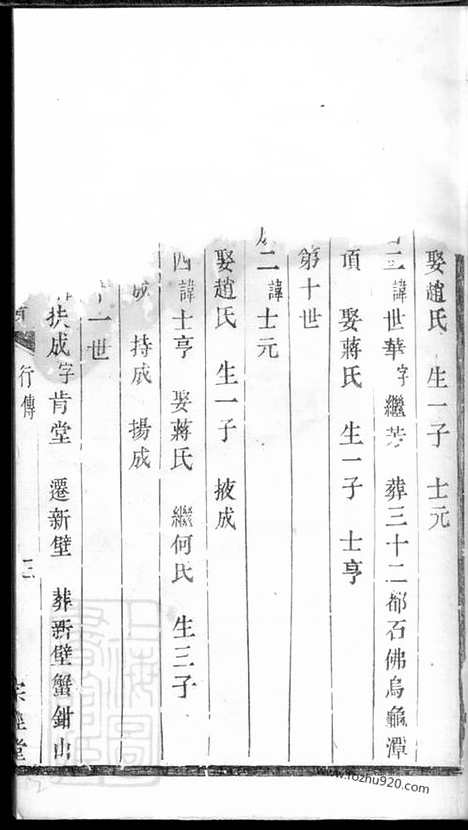 娶趙氏 生一子 士元
三諱世華字繼芳 葬三十二都石佛烏龜潭
項 娶蔣氏 生一子 士亨
第十世
二諱士元
娶趙氏 生一子 掖成
四諱士亨 娶蔣氏 繼何氏 生三子
成 持成 揚成
十一世
扶成字肯堂 遷新壁 葬新壁蟹鉗山
行傳 三
上海圖書館藏
www.fozhu920.com